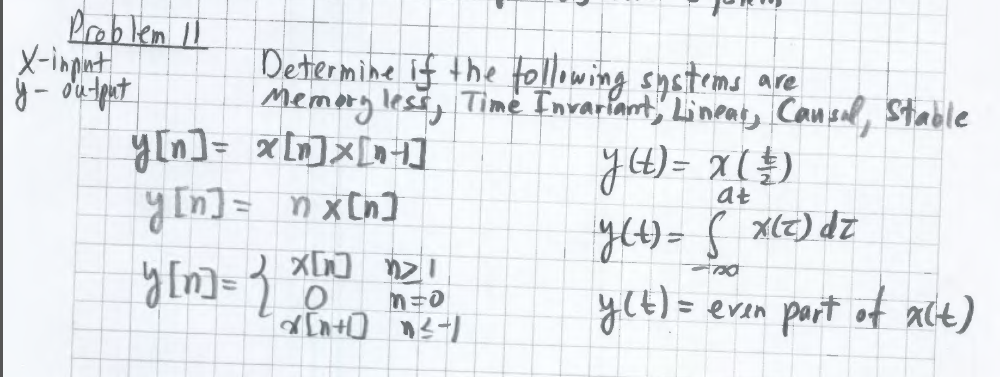 Problem 11
X-input
y- output
Determine if the following systems are
Memoryless, Time Invariant, Linear, Causal, Stable
y[n] = x[n]x[n-1]
y[n] = n x[n]
y[n] = { x[n] n≥1
0 n=0
x[n+1] n≤-1
y(t) = x(t/2)
y(t) = ∫_{-∞}^{at} x(τ) dτ
y(t) = even part of x(t)